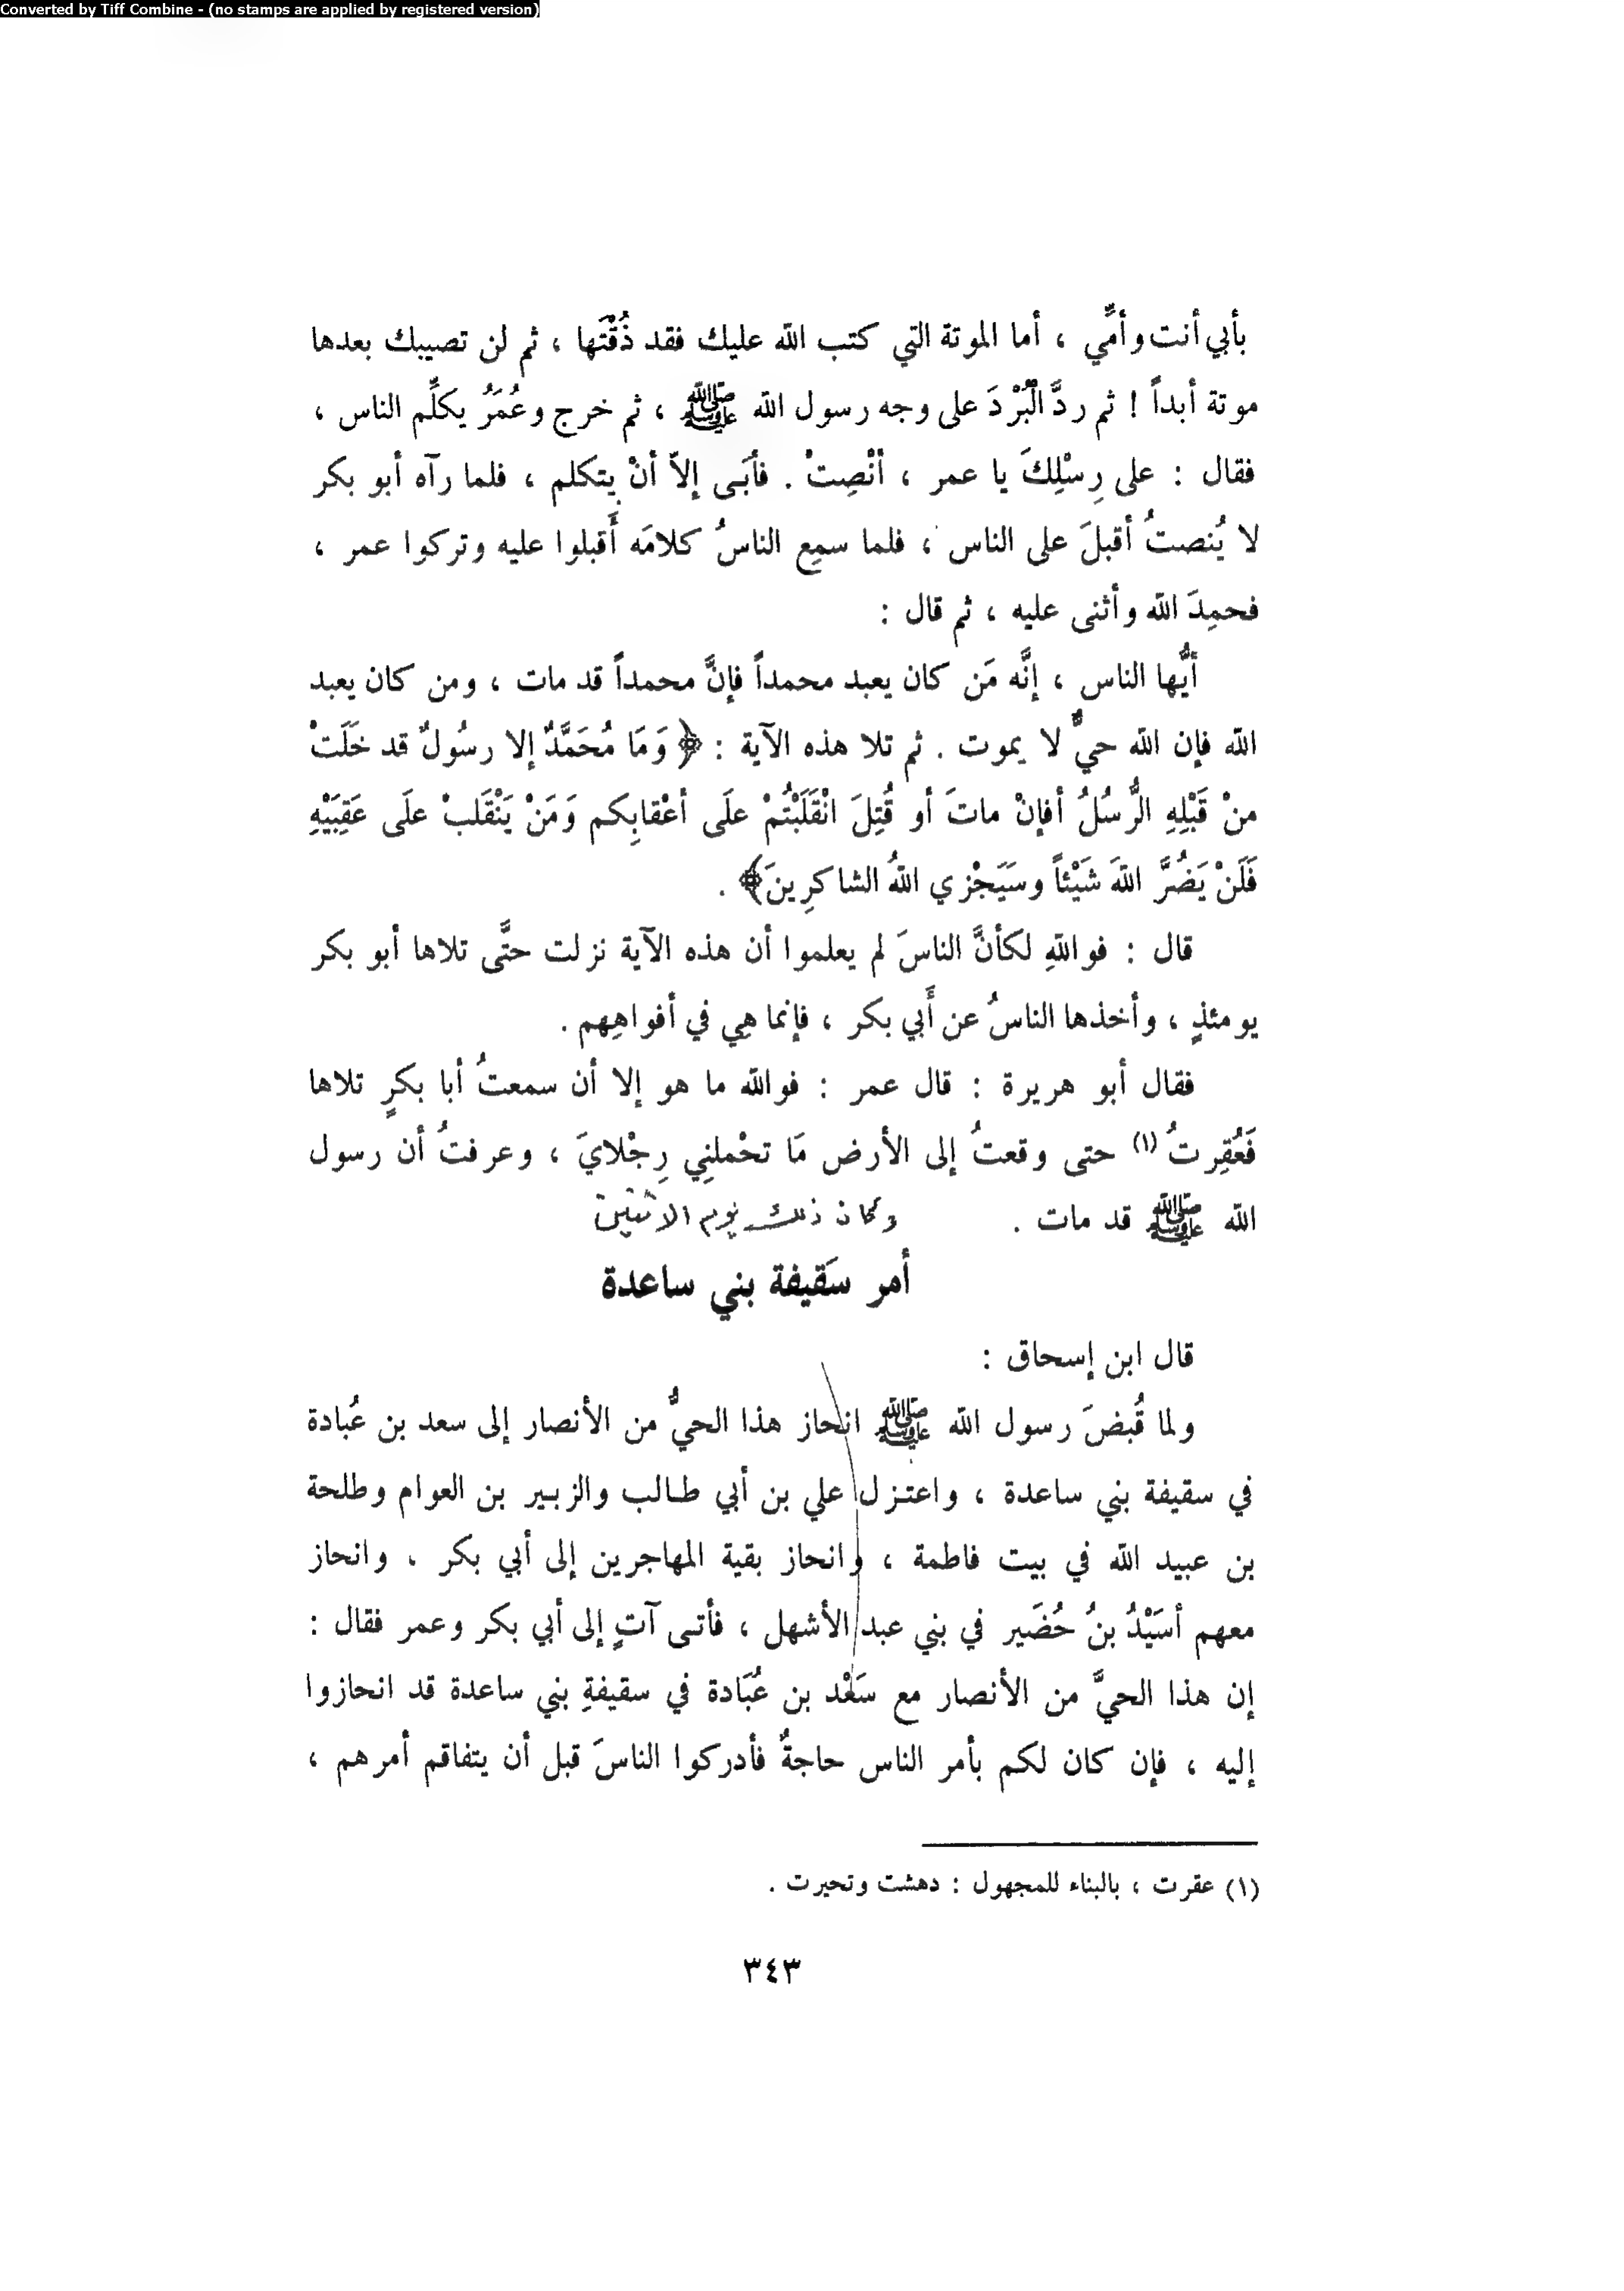 Converted by Tiff Combine - (no stamps are applied by registered version)
بأبي أنت وأمِّي ، أما الموتة التي كتب الله عليك فقد ذُقْتَها ، ثم لن تصيبك بعدها
موتة أبداً ! ثم ردَّ الْبُرْدَ على وجه رسول الله ﷺ ، ثم خرج وعُمَرُ يكلِّم الناس ،
فقال : على رِسْلِكَ يا عمر ، أنْصِتْ . فأبَى إلاّ أنْ يتكلم ، فلما رآه أبو بكر
لا يُنصتُ أقبلَ على الناس ، فلما سمِع الناسُ كلامَه أَقبلوا عليه وتركوا عمر ،
فحمِدَ الله وأثنى عليه ، ثم قال :
أيُّها الناس ، إنَّه مَن كان يعبد محمداً فإنَّ محمداً قد مات ، ومن كان يعبد
الله فإن الله حيٌّ لا يموت . ثم تلا هذه الآية : ﴿ وَمَا مُحَمَّدٌ إلا رسُولٌ قد خَلَتْ
منْ قَبْلِهِ الرُّسُلُ أفإنْ ماتَ أو قُتِلَ انْقَلَبْتُمْ علَى أعْقابِكم وَمَنْ يَنْقَلبْ علَى عَقِبَيْهِ
فَلَنْ يَضُرَّ اللهَ شَيْئاً وسَيَجْزي اللهُ الشاكرِينَ﴾ .
قال : فواللهِ لكأنَّ الناسَ لم يعلموا أن هذه الآية نزلت حتَّى تلاها أبو بكر
يومئذٍ ، وأخذها الناسُ عن أَبي بكر ، فإنما هِي في أفواهِهم .
فقال أبو هريرة : قال عمر : فوالله ما هو إلا أن سمعتُ أبا بكرٍ تلاها
فَعُقِرتُ (١) حتى وقعتُ إلى الأرض مَا تحْملنِي رِجْلايَ ، وعرفتُ أن رسول
الله ﷺ قد مات . وكان ذلك يوم الاثنين
أمر سَقيفة بني ساعدة
قال ابن إسحاق :
ولما قُبضَ رسول الله ﷺ انحاز هذا الحيُّ من الأنصار إلى سعد بن عُبادة
في سقيفة بني ساعدة ، واعتزل علي بن أبي طالب والزبير بن العوام وطلحة
بن عبيد الله في بيت فاطمة ، وانحاز بقية المهاجرين إلى أبي بكر . وانحاز
معهم أسَيْدُ بنُ حُضَير في بني عبد الأشهل ، فأتى آتٍ إلى أبي بكر وعمر فقال :
إن هذا الحيَّ من الأنصار مع سَعْد بن عُبَادة في سقيفةِ بني ساعدة قد انحازوا
إليه ، فإن كان لكم بأمر الناس حاجةٌ فأدركوا الناسَ قبل أن يتفاقم أمرهم ،
(١) عقرت ، بالبناء للمجهول : دهشت وتحيرت .
٣٤٣